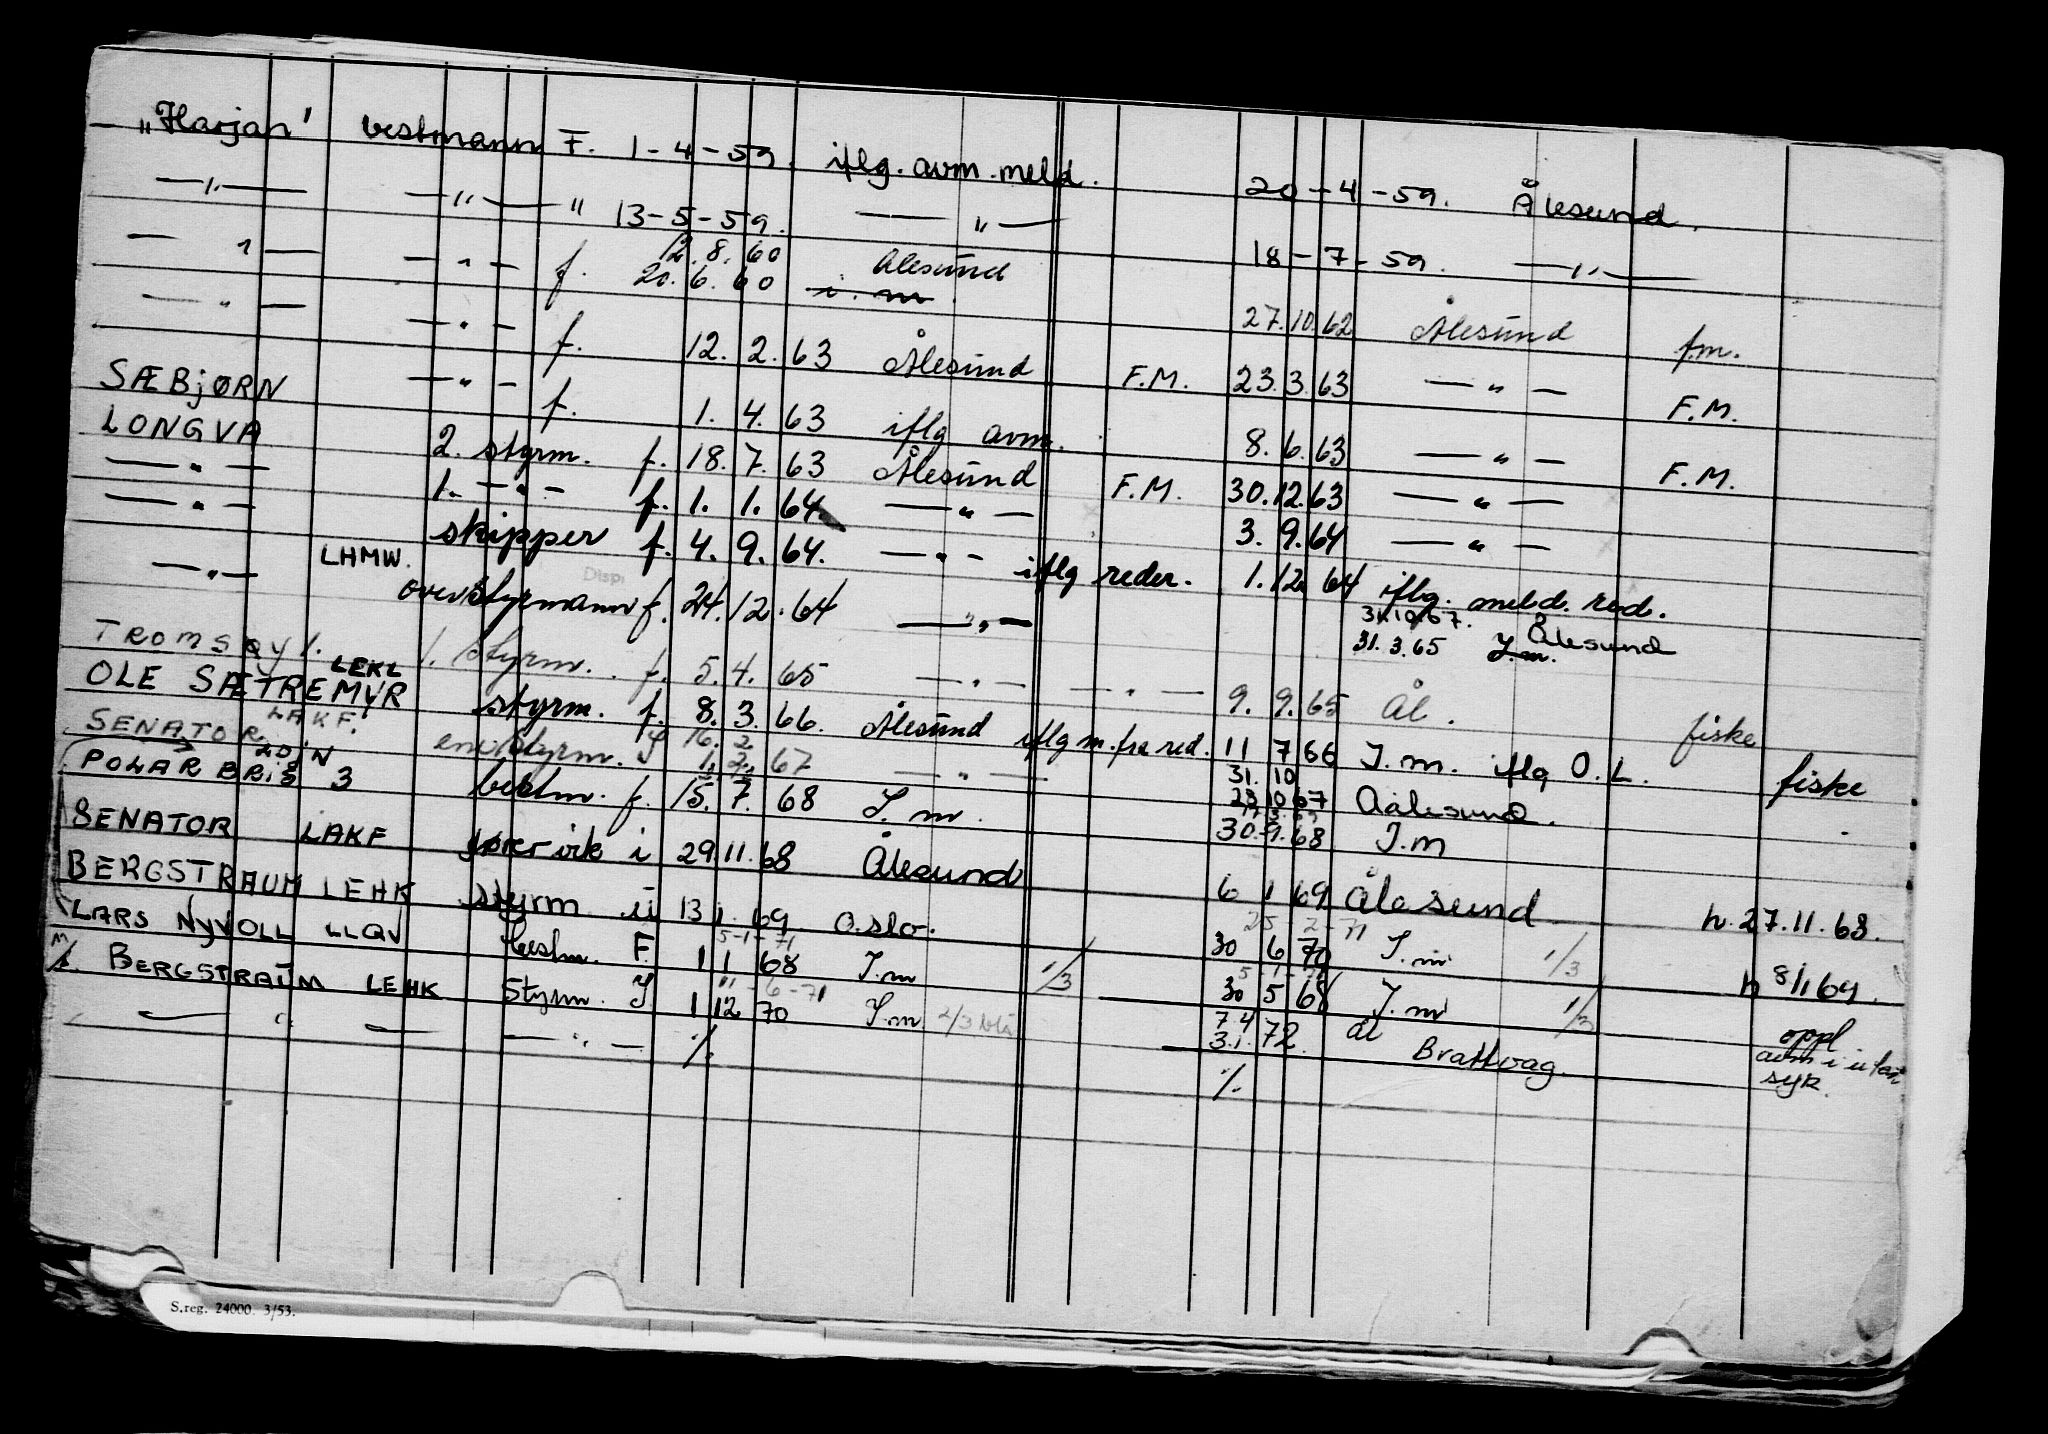 "Harjan" bestmann F. 1-4-59. iflg. avm. meld. 20-4-59. Ålesund.
—"— —"— " 13-5-59. —"— 18-7-59. —"—
—"— —"— f. 12.8.60 Ålesund 27.10.62 Ålesund fm.
20.6.60 i.m.
—"— —"— f. 12.2.63 Ålesund F.M. 23.3.63 —"— F.M.
SÆBJØRN —"— f. 1.4.63 iflg avm. 8.6.63 —"— F.M.
LONGVA 2. styrm. f. 18.7.63 Ålesund F.M. 30.12.63 —"—
—"— 1. —"— f. 1.1.64 —"— 3.9.64 —"—
—"— skipper f. 4.9.64. —"— iflg reder. 1.12.64 iflg. meld. red.
—"— LHMW. overstyrmann f. 24.12.64 —"— 31.3.65 Ålesund
I.m.
TROMSØY 1. styrm. f. 5.4.65 —"— —"— 9.9.65 Ål. fiske
OLE SÆTREMYR LEKL styrm. f. 8.3.66. Ålesund iflg m. fra red. 11 7 66 I.m. iflg O.L. fiske
SENATOR LAKF. styrm. 16.2
1.2.67 —"— 31.10
28 10 67 Aalesund.
POLARBRIS 3 bestm. f. 15.7.68 I.m. 30.9.68 I.m
SENATOR LAKF i 29.11.68 Ålesund 6 1 69 Ålesund h. 27.11.68.
BERGSTRAUM LEHK styrm ii 13 1. 69. Oslo. 25-2-71
30 6 70 I.m 1/3 h 8/1 69.
LARS NYVOLL LLQV bestm. F. 5-1-71
1 1 68 I.m 1/3 30 5 68 I.m 1/3 oppl
M/S. BERGSTRAUM LEHK Styrm. 11-6-71
1 12 70 I.m 2/3 blå 7.4
3.1. 72. ål Brattvåg. avm i
syk.
—"— —"— ./. ./.
S.reg. 24000. 3/53.